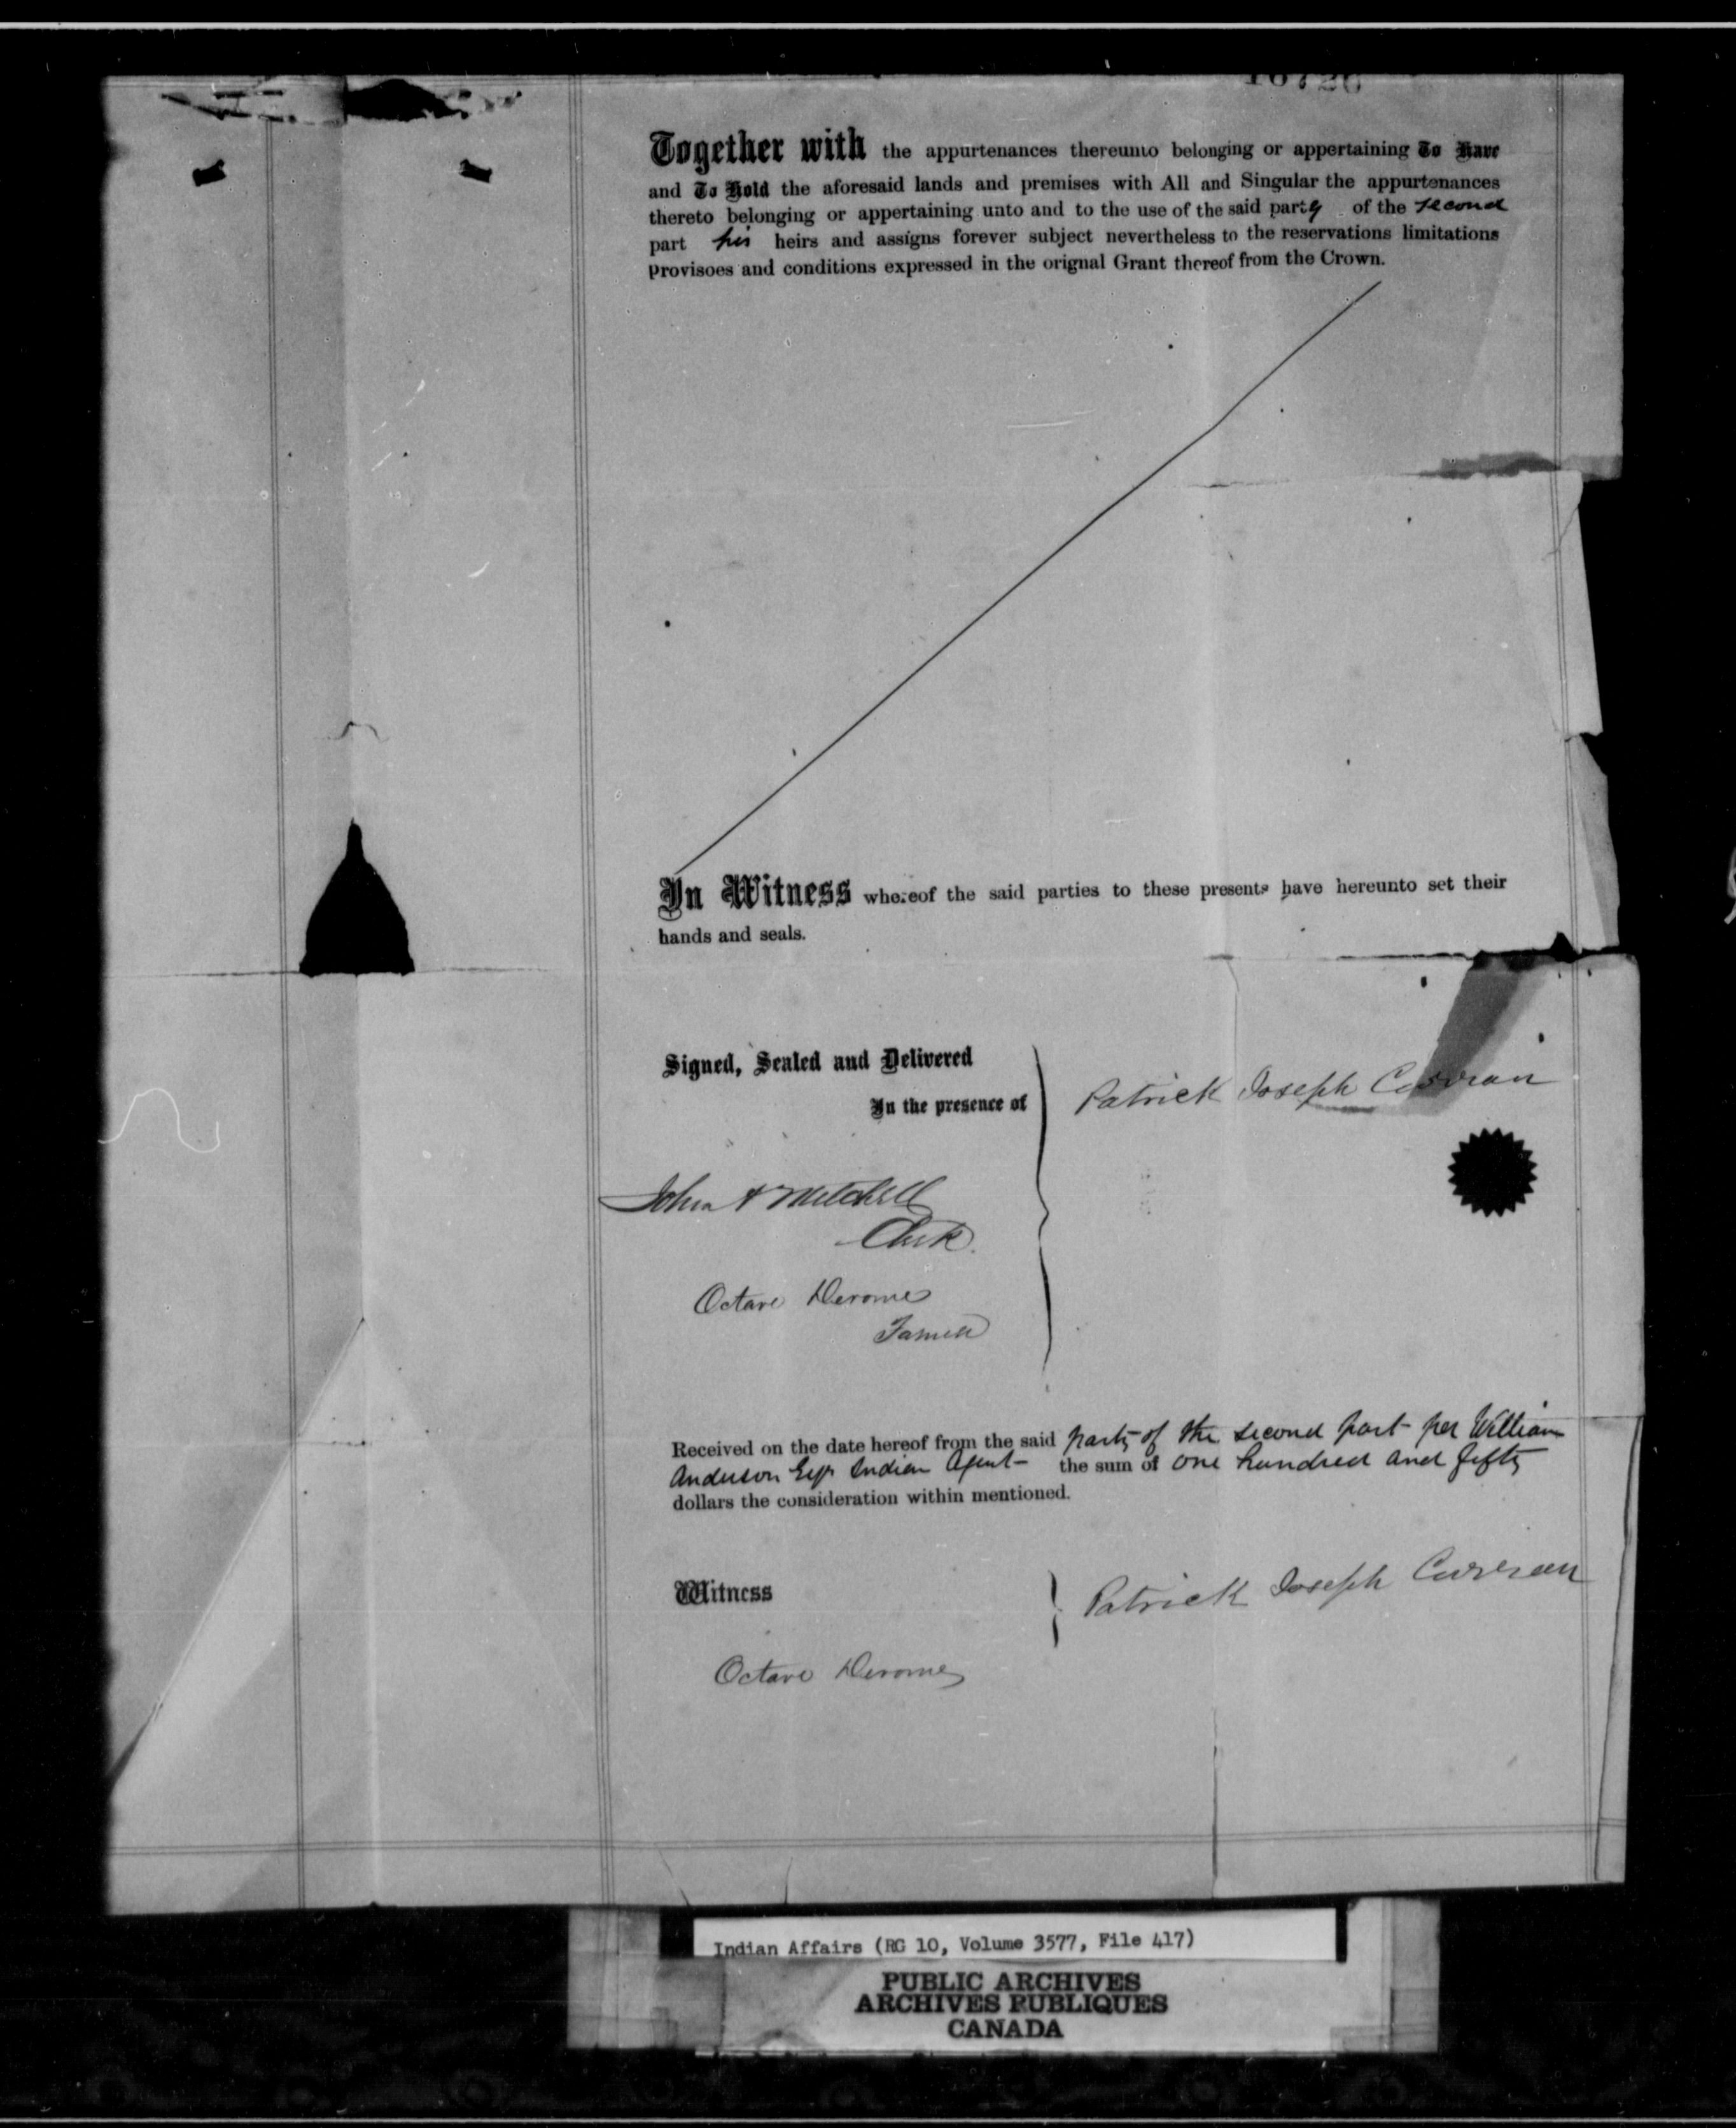 Together with the appurtenances thereunto belonging or appertaining To Have
and To Hold the aforesaid lands and premises with All and Singular the appurtenances
thereto belonging or appertaining unto and to the use of the said party of the second
part his heirs and assigns forever subject nevertheless to the reservations limitations
provisoes and conditions expressed in the orignal Grant thereof from the Crown.
In Witness whereof the said parties to these presents have hereunto set their
hands and seals.
Signed, Sealed and Delivered
In the presence of
Patrick Joseph Curran
John A Mitchell
Clerk.
Octave Derome
Received on the date hereof from the said party of the second part per William
Anderson Esqr Indian Agent the sum of one hundred and fifty
dollars the consideration within mentioned.
Witness
Patrick Joseph Curran
Octave Derome
Indian Affairs (RG 10, Volume 3577, File 417)
PUBLIC ARCHIVES
ARCHIVES PUBLIQUES
CANADA